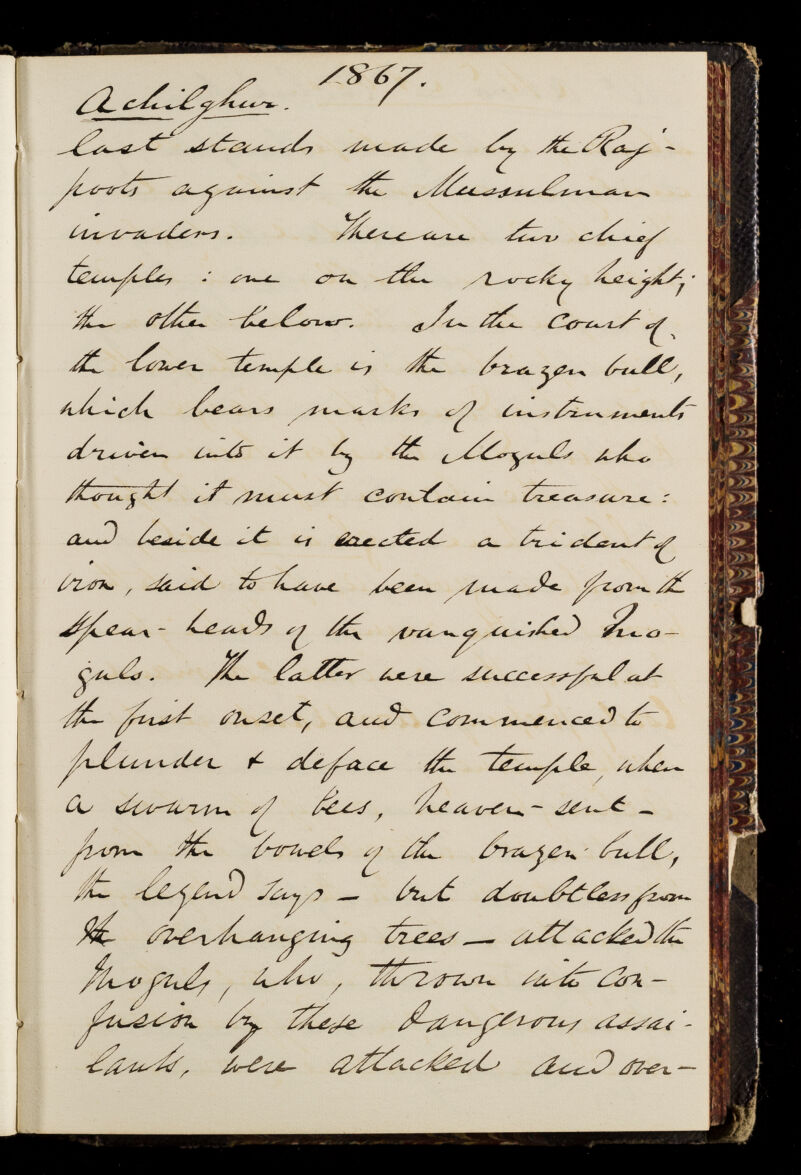 1867.
Achilghur.
last stands made by the Raj-
poots against the Mussulman
invaders. There are two chief
temples : one on the rocky height;
the other below. In the court of
the lower temple is the brazen bull,
which bears marks of instruments
driven into it by the Moguls who
thought it must contain treasure :
and beside it is erected a trident of
iron, said to have been made from the
spear-heads of the vanquished Mo-
guls. The latter were successful at
the first onset, and commenced to
plunder & deface the temple, when
a swarm of bees, heaven-sent -
from the bowels of the brazen bull,
the legend says - but doubtless from
the overhanging trees - attacked the
Moguls, who, thrown into con-
fusion by these dangerous assai-
lants, were attacked and over-